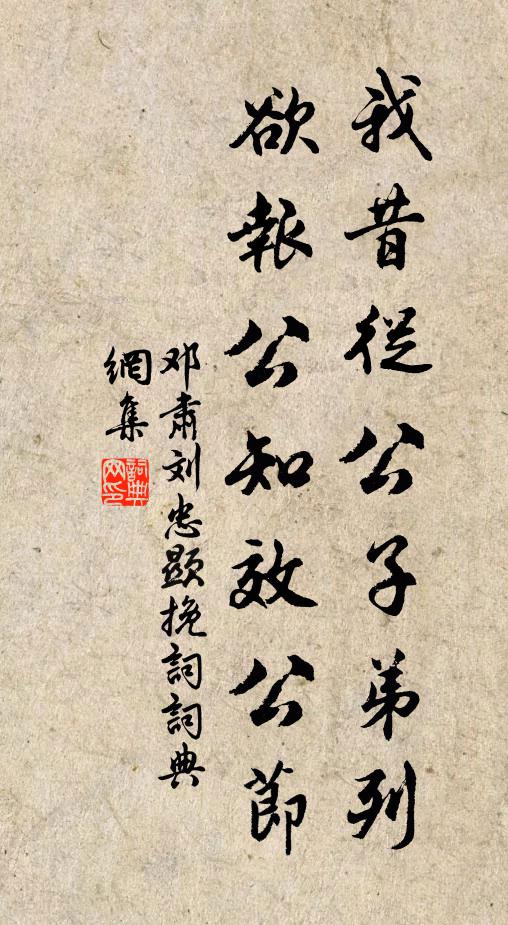 我昔從公子弟列
欲報公知效公節
邓肅刘忠顯挽詞詞典
網集
詞典網印